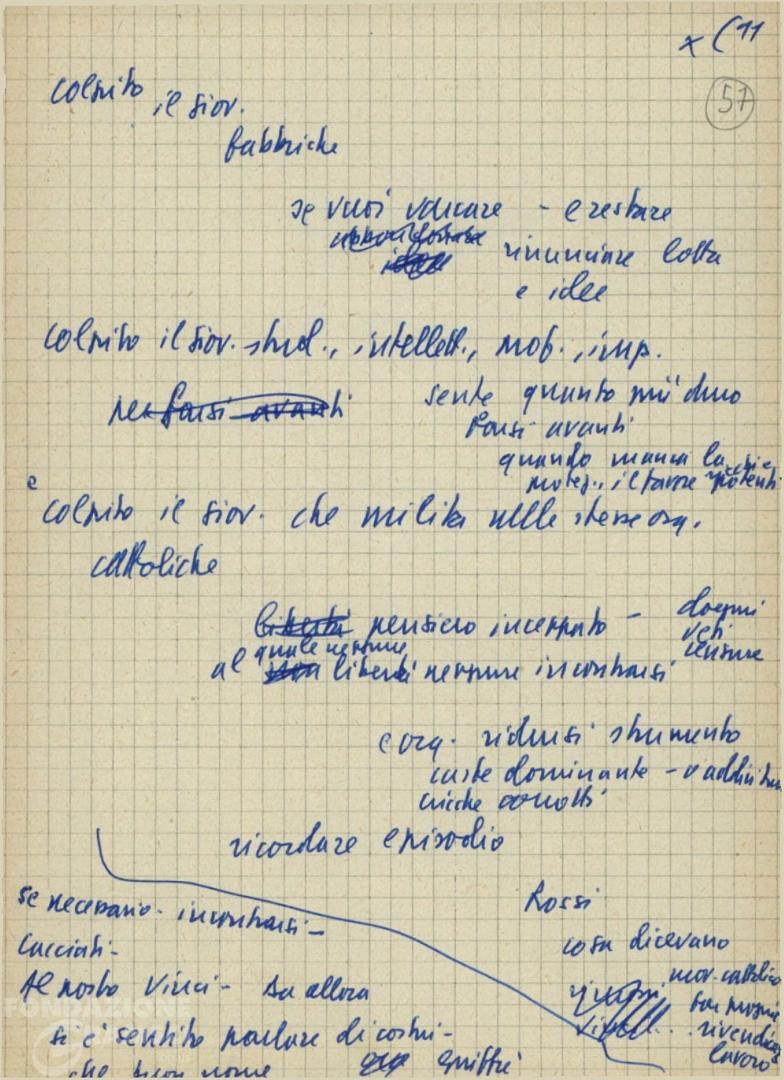 x (11
57
colpito il giov.
fabbriche
se vuoi varcare - e restare
rinunciare lotta
e idee
colpito il giov. stud., intellett., prof., imp.
per farsi avanti
sente quanto più duro
farsi avanti
quando manca la
protez., il favore potenti
e
colpito il giov. che milita nelle stesse org.
cattoliche
libertà pensiero inceppato - dogmi
veti
censure
al quale neppure
libertà neppure incontrarsi
e org. ridursi strumento
caste dominante - addirittura
cricche corrotti
ricordare episodio
se necessario incontrarsi -
cacciati -
Al posto Vinci - Da allora
si è sentito parlare di costui -
che buon nome
Rossi
cosa dicevano
mov. cattolico
rivendicaz
lavoro
FONDAZIONE